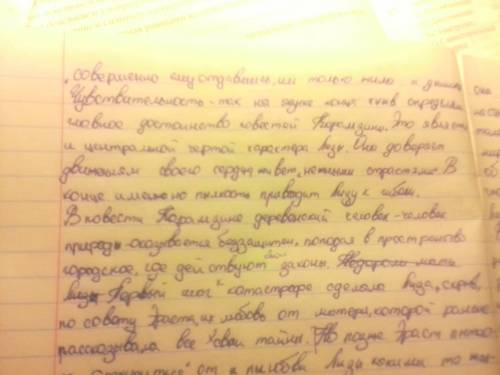 "совершенно ему отдавшись, им только жила и дышала
Чувствительность - так на языке конца XVIII в определяли
главное достоинство повестей Карамзина. Это является
и центральной чертой характера Лизы. Она доверяет
движеньям своего сердца, живёт "нежными страстями". В
конце именно пылкость приводит Лизу к гибели.
В повести Карамзина деревенский человек - человек
природы оказывается беззащитен, попадая в пространство
городское, где действуют свои законы.
Первый шаг к катастрофе сделала Лиза, скрыв,
по совету Эраста, их любовь от матери, которой раньше
рассказывала все свои тайны. Но позже Эраст
от любви Лизы какими то